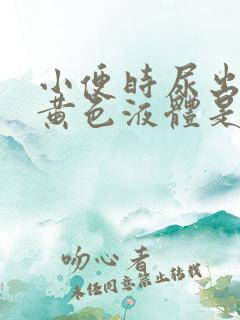 小便時尿出
黄色液體是
吻心者
未经同意禁止转载